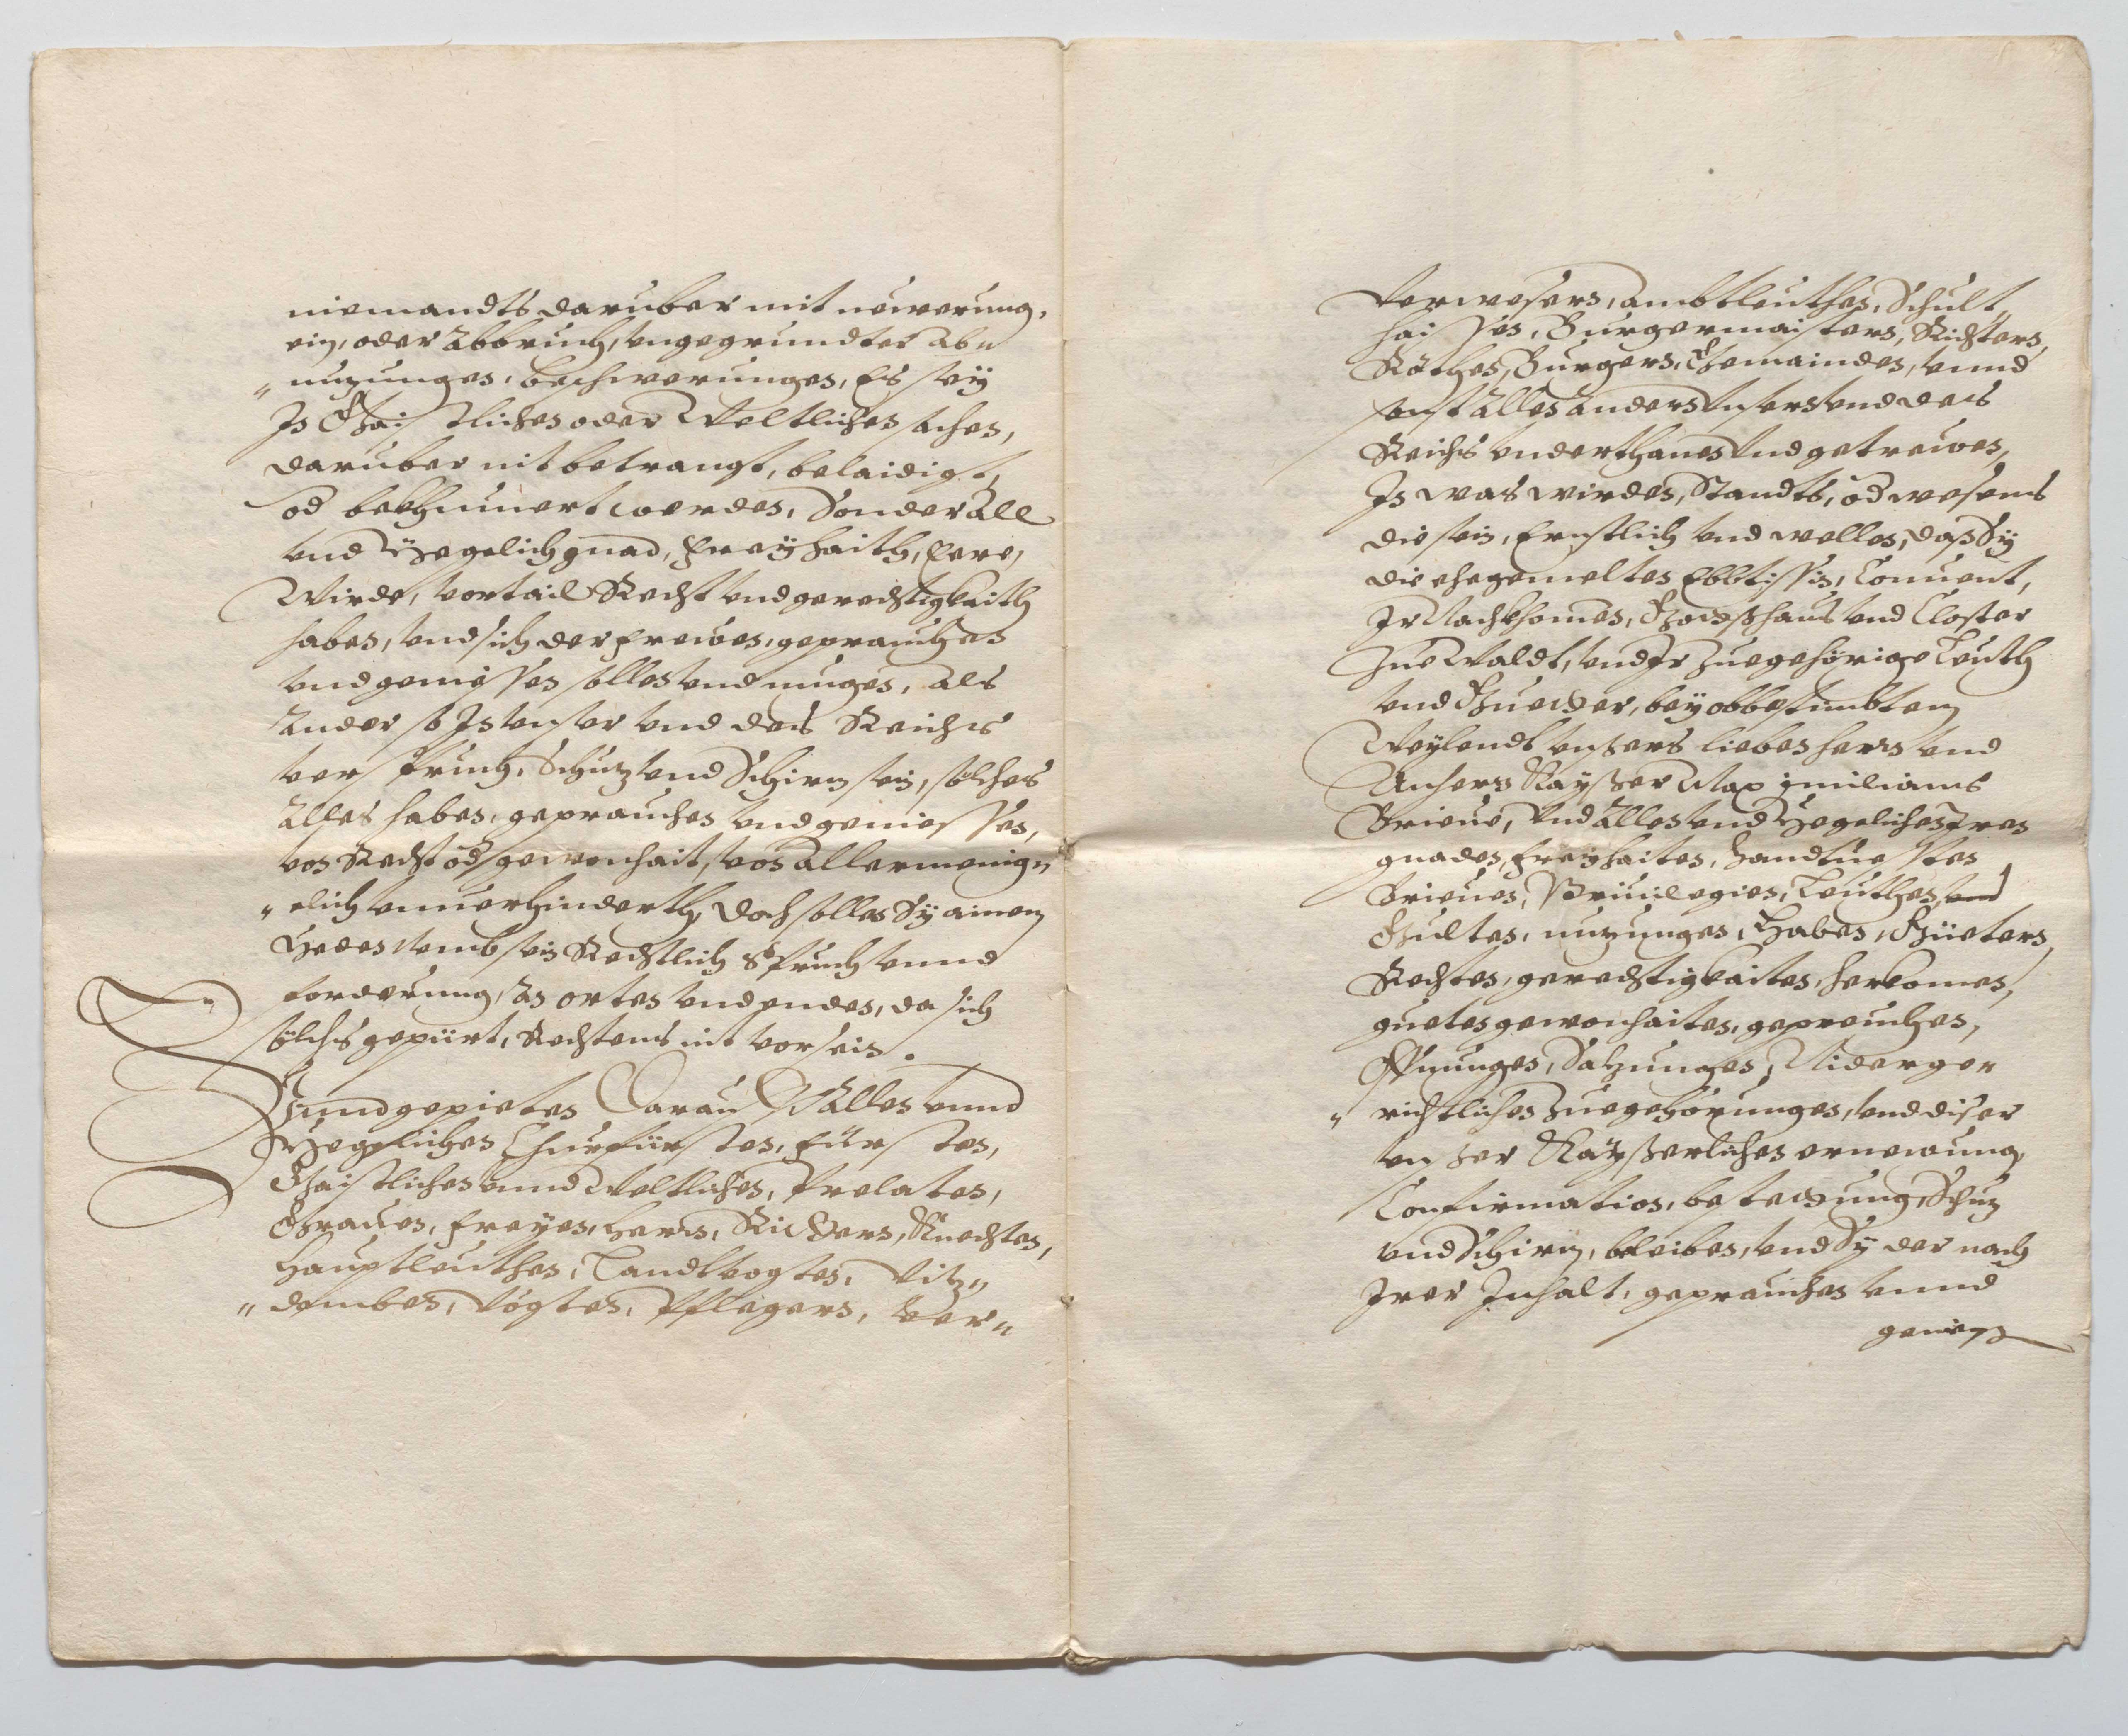 niemandts daruber mit neuwerung,
ein, oder Abbruch, vngegrundter ab„
„ nuzungen, beschwerungen, Es seÿ
In Gaistlichen oder Weltlichen sachen,
daruber nit betrangt, belaidigt,
od bekhumert werden, Sonder all
vnd Yegelich gnad, Freÿhaith, Eere,
Wirde, vortail Recht vnd gerechtigkaith
haben, vnd sich der freuwen, geprauchen
vnd geniessen sollen vnd mugen, als
Ander so In vnser vnd des Reichs
versprüch, Schuz vnd Schirm sein, solches
Alles haben, geprauchen vnd geniessen,
von Recht od gewonhait, von allermenig„
„ elich vnuerhinderth, doch sollen Sÿ ainem
Yeden vmb sein Rechtlich spruch vnnd
vorderung, An orten vnd enden, da sich
sölchs gepürt, Rechtens nit vor sein.
Vnnd gepieten Darauff Allen vnnd
Yegclichen Churfürsten, Fürsten,
Gaistlichen vnnd Weltlichen, Prelaten,
Grauen, Freyen, Herrn, Rittern, Knechten,
Hauptleuthen, Landtvogten, Vitz„
„ domben, Vögten, Pflegern, Ver„
Verwesern, Ambtleuthen, Schult„
haissen, Burgermaistern, Richtern,
Räthen, Burgern, Gemainden, vnnd
sonst Allen andern Vnsern vnd des
Reichs vnderthanen Vnd getreuwen,
In was wirden, Standts, od wesens
die sein, Ernstlich vnd wellen, das Sÿ
die ehegemelten Ebbtissin, Conuent,
Ir Nachkhomen, Gottßhaus vnd Closter
Zue Waldt, vnd Ir Zuegehörige Leuth
vnd Guetter, bey obbestimbtem
Weÿlendt vnsers lieben herrn vnd
Anhern Kaÿser Maximilians
Brieue, Vnd Allen vnd Yegelichen Iren
gnaden, Freÿhaiten, Handtuesten
Brieuen, Priuilegien, Leuthen, vnd
Gulten, nuzungen, Haben, Güetern,
Rechten, gerechtigkaiten, herkomen,
gueten gewonhaiten, gepreuchen,
Offnungen, Satzungen, Nider ge„
„ richtlichen Zuegehörungen, vnd diser
vnser Kaÿserlichen ernewung,
Confirmation, bestettung, Schuz
vnd Schirm, bleiben, vnd Sÿ der nach
Irer Inhalt, geprauchen vnnd
geniess